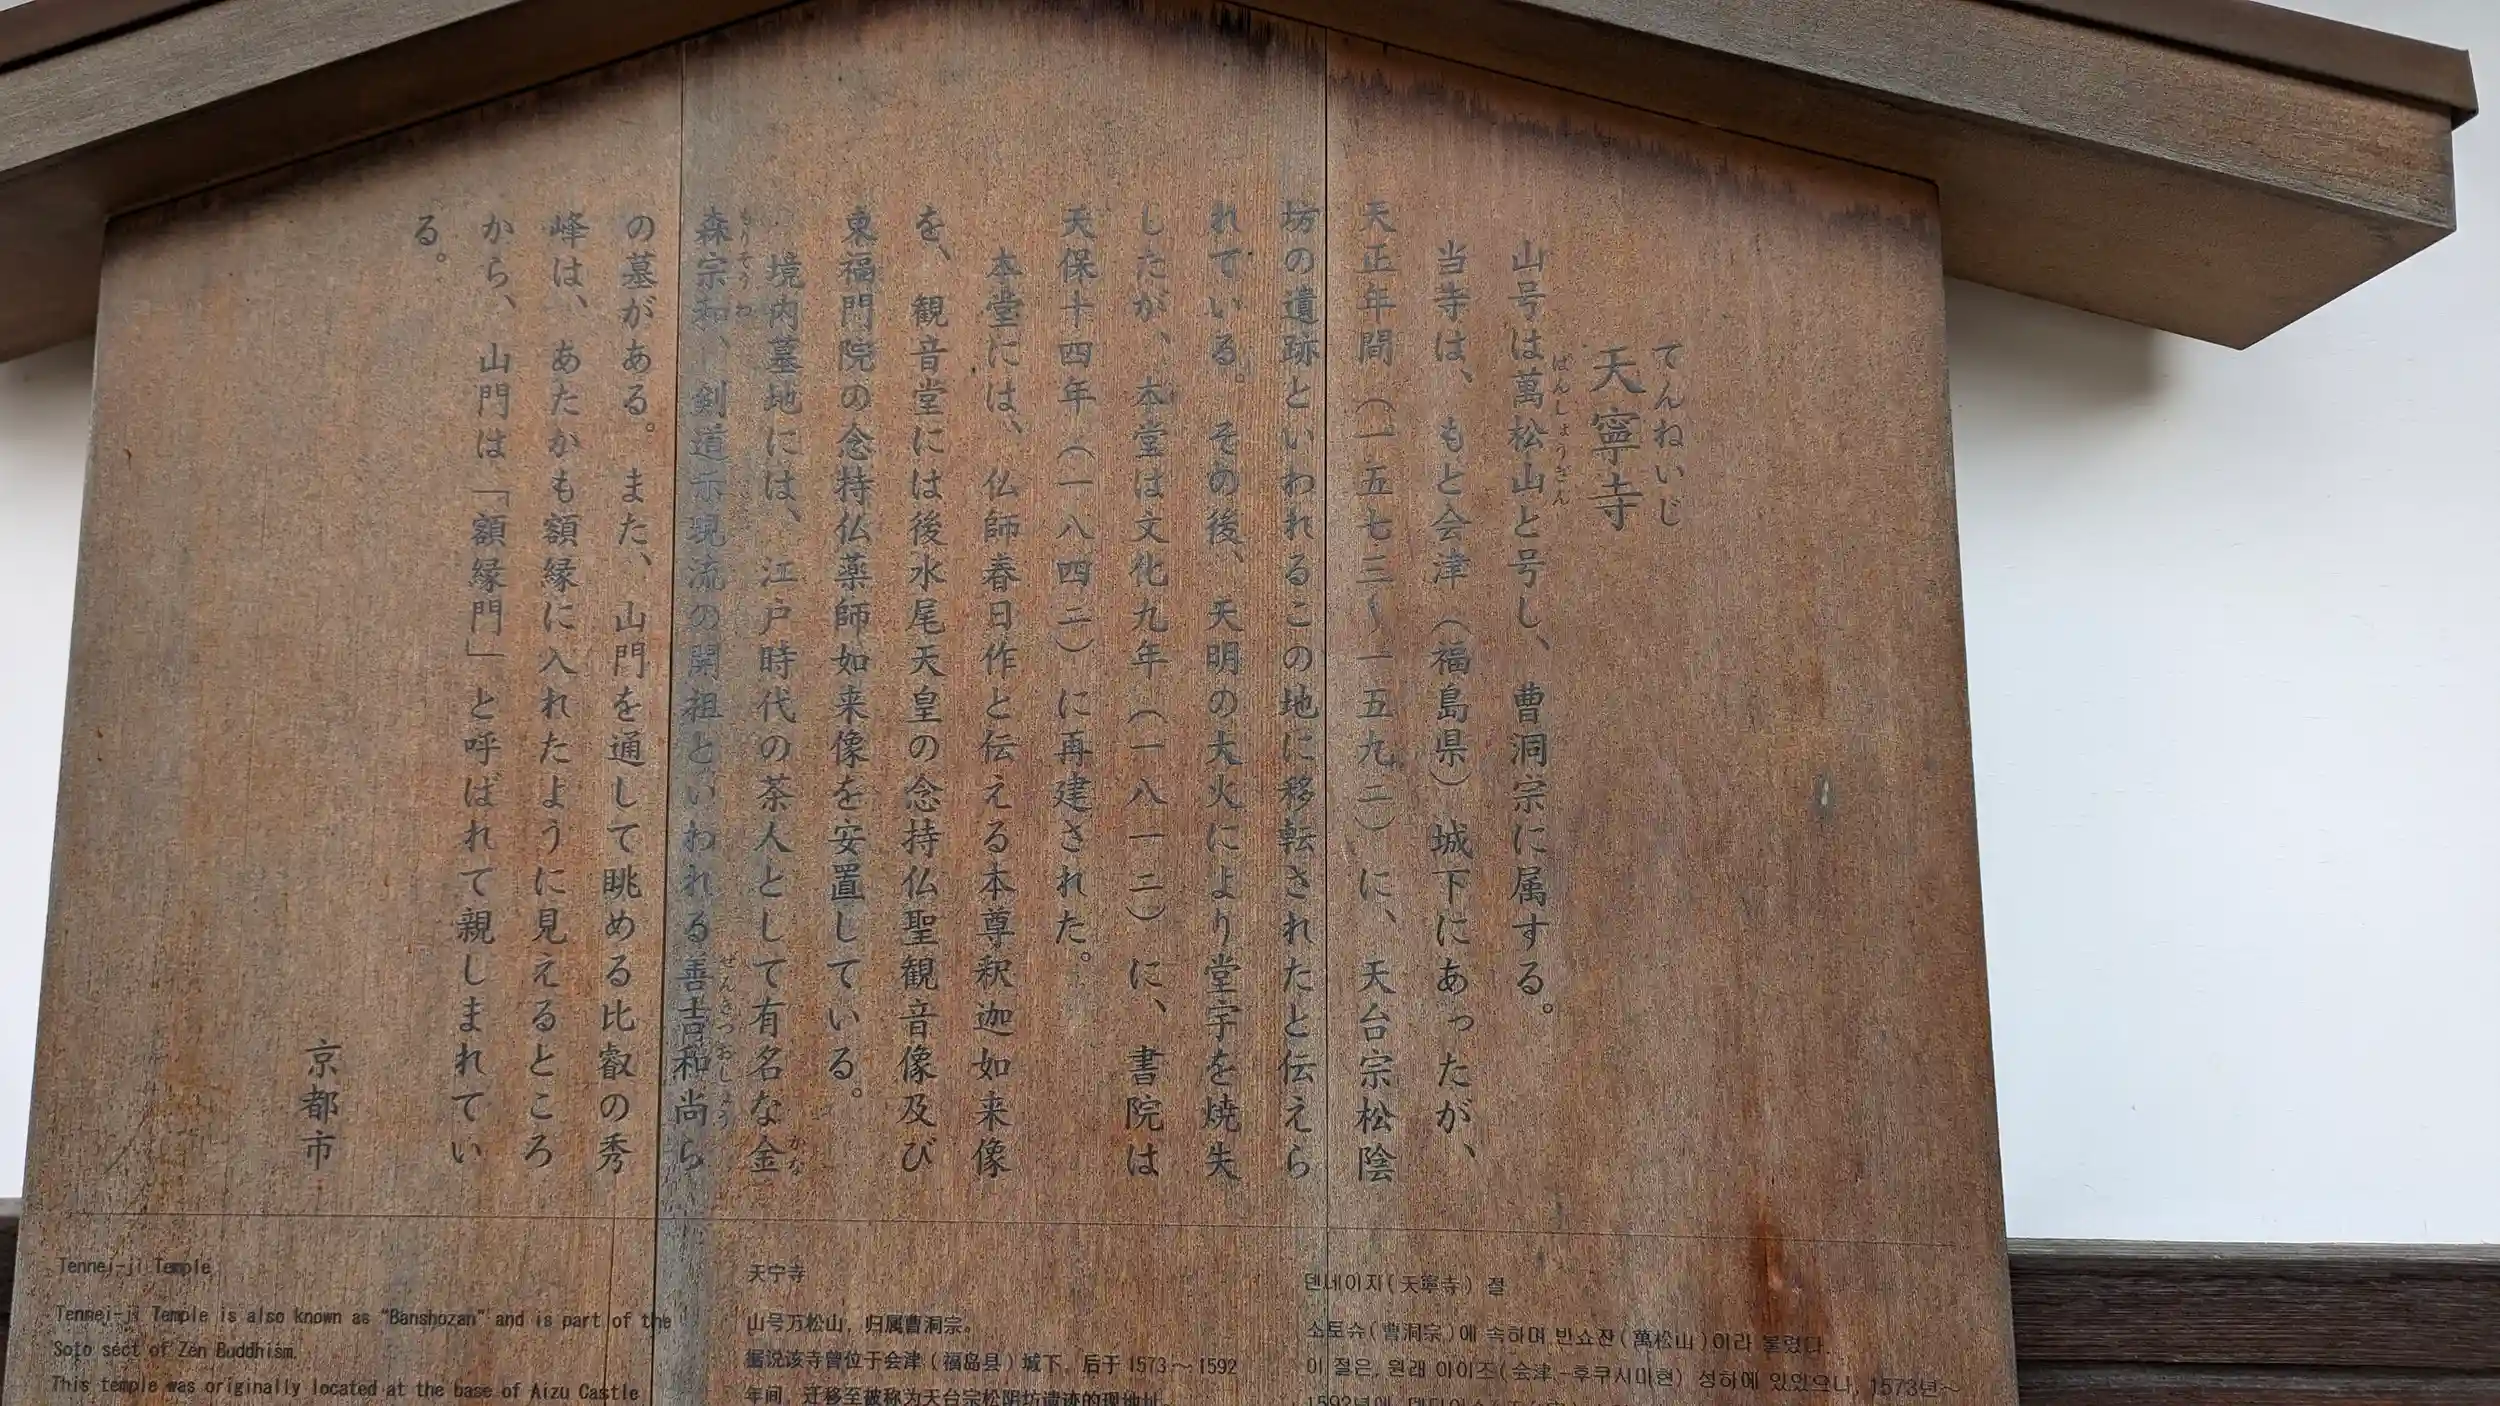 てんねいじ
天寧寺
ばんしょうざん
山号は萬松山と号し、曹洞宗に属する。
当寺は、もと会津（福島県）城下にあったが、
天正年間（一五七三〜一五九二）に、天台宗松陰
坊の遺跡といわれるこの地に移転されたと伝えら
れている。その後、天明の大火により堂宇を焼失
したが、本堂は文化九年（一八一二）に、書院は
天保十四年（一八四三）に再建された。
本堂には、仏師春日作と伝える本尊釈迦如来像
を、観音堂には後水尾天皇の念持仏聖観音像及び
東福門院の念持仏薬師如来像を安置している。
かな
境内墓地には、江戸時代の茶人として有名な金
もりそうわ ぜんきつおしょう
森宗和、剣道示現流の開祖といわれる善吉和尚ら
の墓がある。また、山門を通して眺める比叡の秀
峰は、あたかも額縁に入れたように見えるところ
から、山門は「額縁門」と呼ばれて親しまれてい
る。
京都市
Tennei-ji Temple
Tennei-ji Temple is also known as “Banshozan” and is part of the
Soto sect of Zen Buddhism.
This temple was originally located at the base of Aizu Castle
天宁寺
山号万松山，归属曹洞宗。
据说该寺曾位于会津（福岛县）城下，后于1573～1592
年间，迁移至被称为天台宗松阴坊遗迹的现地址。
덴네이지(天寧寺) 절
소토슈(曹洞宗)에 속하며 반쇼잔(萬松山)이라 불렸다.
이 절은, 원래 아이즈(会津-후쿠시마현) 성하에 있었으나, 1573년～
1592년에